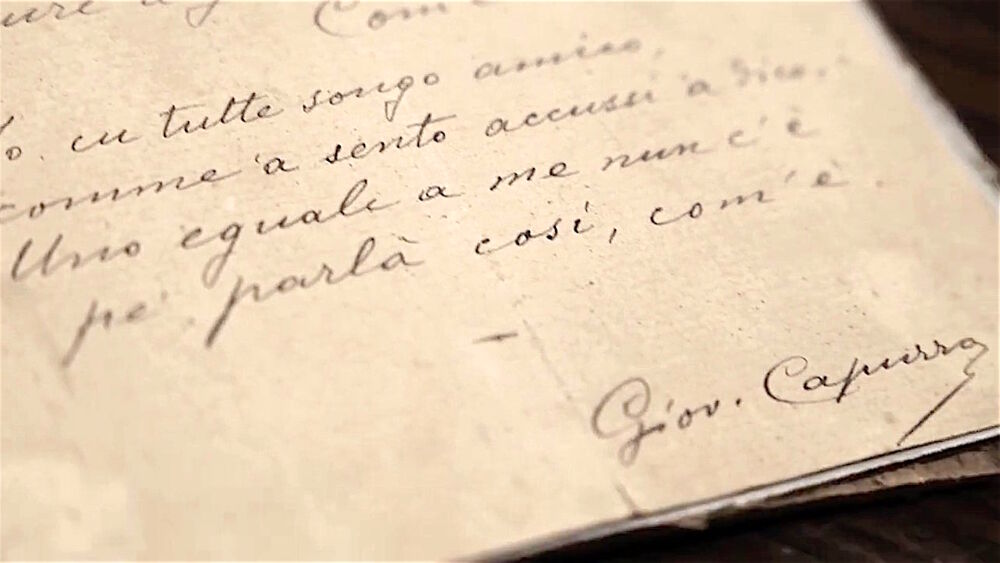 Com
cu tutte songo amico,
comme 'a sento accussì 'a dico.
Uno eguale a me nun c'è
pe' parlà così, com'è.
—
Giov. Capurro